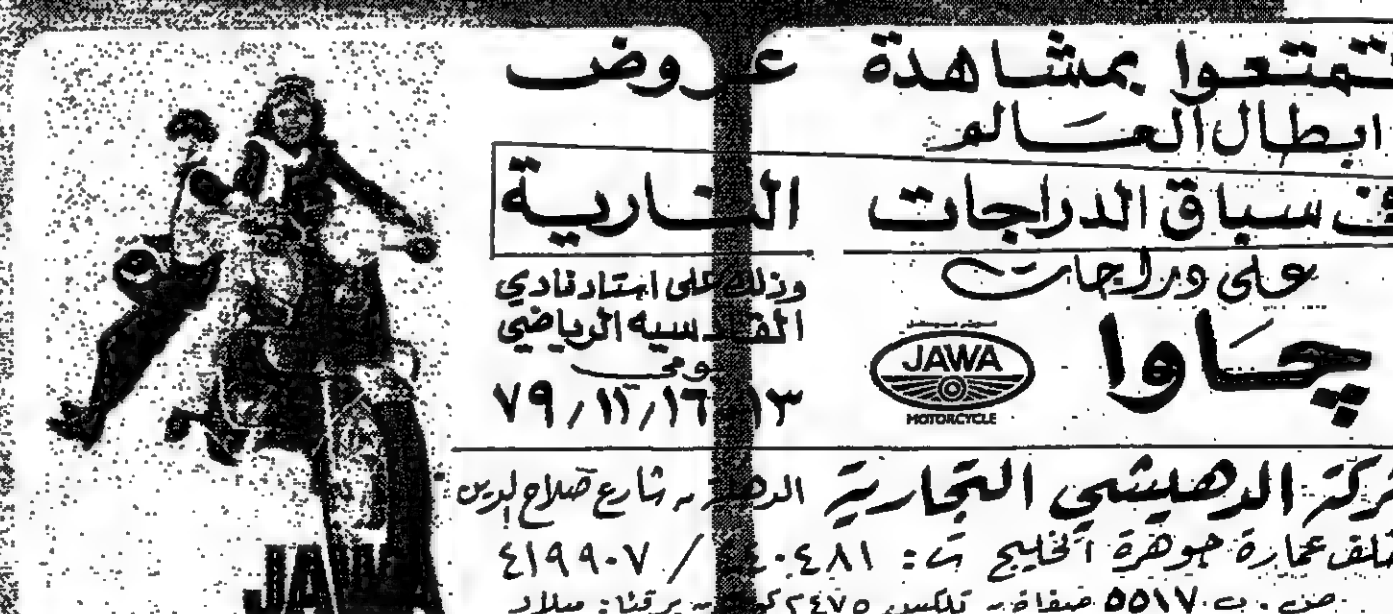 تمتعوا بمشاهدة عروض
ابطال العالم
سباق الدراجات النارية
على دراجات
چاوا
JAWA
MOTORCYCLE
وذلك على استاد نادي
القادسيه الرياضي
يومي
١٣ ١٦/١٢/٧٩
الدهيشي التجارية شارع صلاح الدين
عمارة جوهرة الخليج ت: ٤١٩٩٠٧ /
ص.ب ٥٥١٧ صفاة - تلكس ٢٤٧٥
JAWA